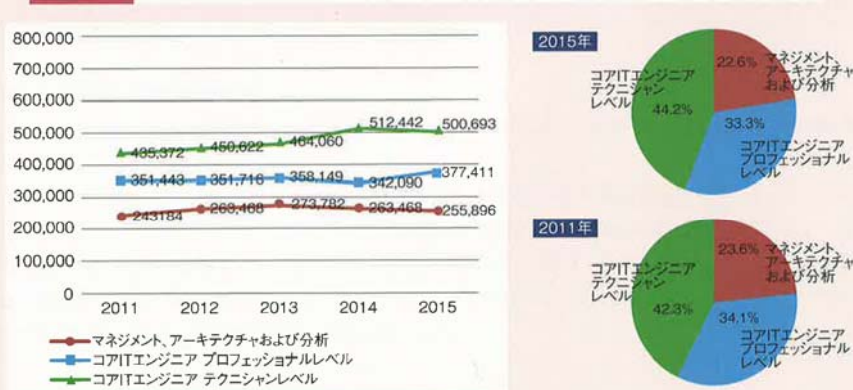 800,000
700,000
600,000
500,000
400,000
300,000
200,000
100,000
0
435,372 450,622 464,060 512,442 500,693
351,443 351,716 358,149 342,090 377,411
243184 263,468 273,782 263,468 255,896
2011 2012 2013 2014 2015
マネジメント、アーキテクチャおよび分析
コアITエンジニア プロフェッショナルレベル
コアITエンジニア テクニシャンレベル
2015年
コアITエンジニア
テクニシャン
レベル
44.2%
22.6%
マネジメント、
アーキテクチャ
および分析
33.3%
コアITエンジニア
プロフェッショナル
レベル
2011年
コアITエンジニア
テクニシャン
レベル
42.3%
23.6%
マネジメント、
アーキテクチャ
および分析
34.1%
コアITエンジニア
プロフェッショナル
レベル